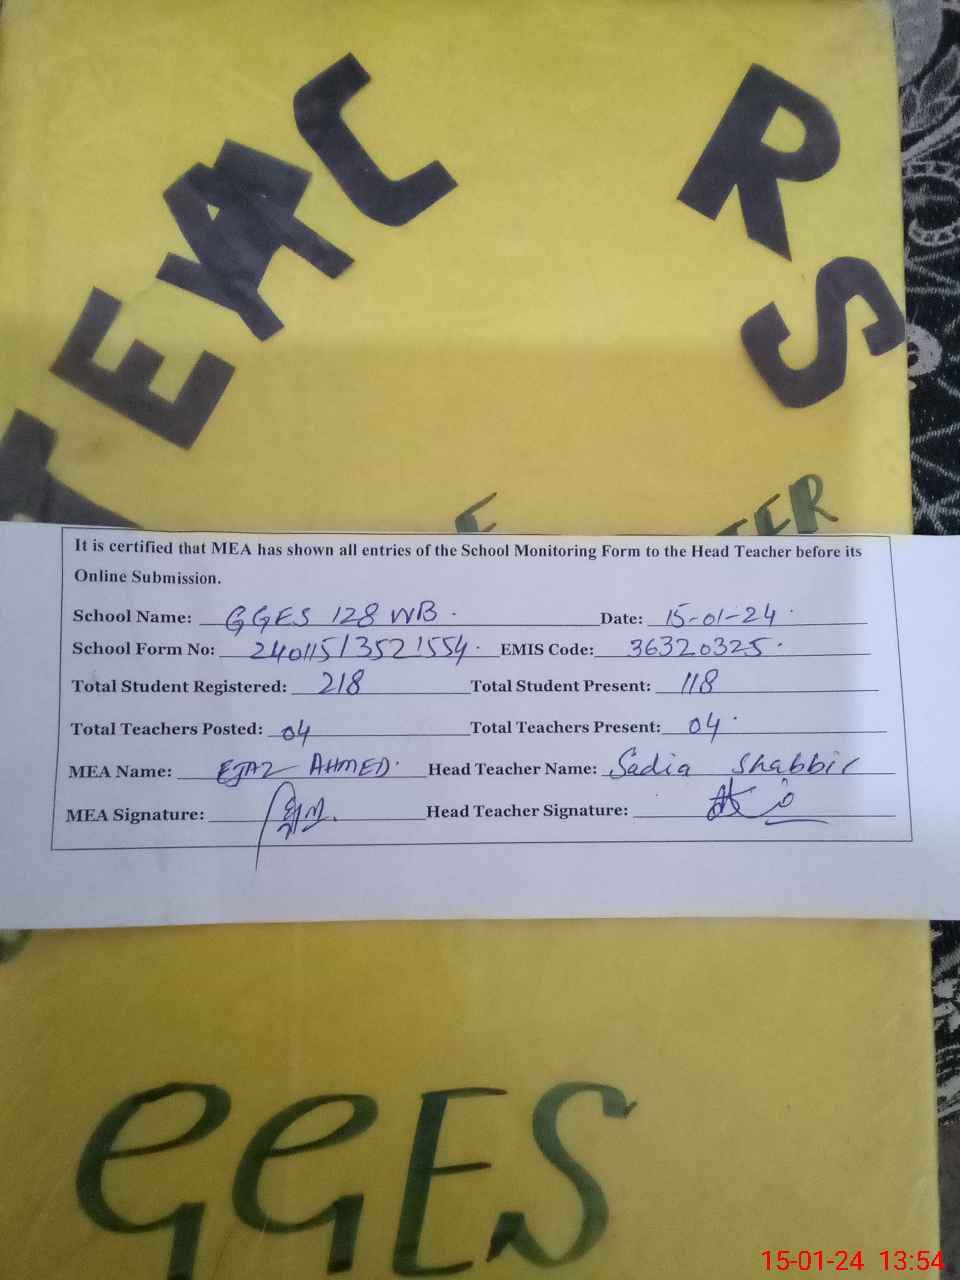 TEAC RS
TER
It is certified that MEA has shown all entries of the School Monitoring Form to the Head Teacher before its
Online Submission.
School Name: GGES 128 WB. Date: 15-01-24
School Form No: 240115/3521554. EMIS Code: 36320325.
Total Student Registered: 218 Total Student Present: 118
Total Teachers Posted: 04 Total Teachers Present: 04
MEA Name: EJAZ AHMED. Head Teacher Name: Sadia Shabbir
MEA Signature: Head Teacher Signature:
GGES
15-01-24 13:54